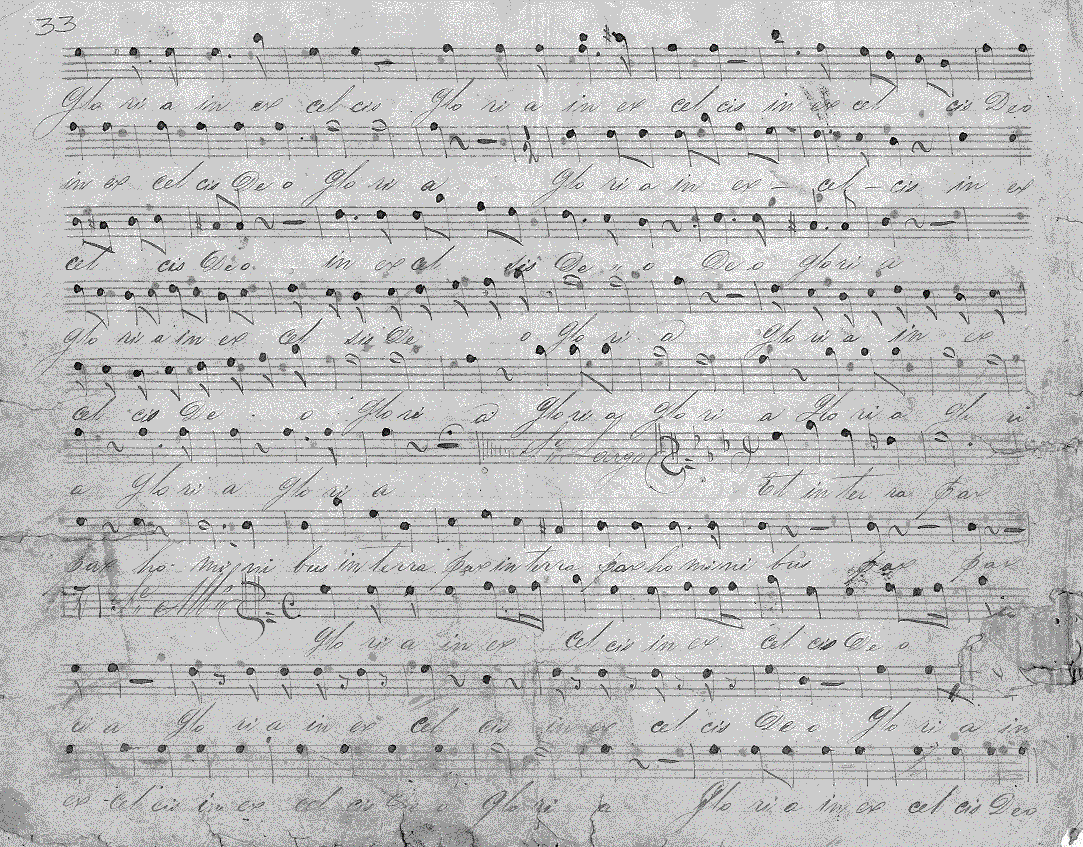 33
Glo ri a in ex cel cis Glo ri a in ex cel cis in ex cel cis Deo
in ex cel cis De o Glo ri a Glo ri a in ex - cel - cis in ex
cel cis Deo in ex cel sis De o De o glo ri a
glo ri a in ex cel sis De o glo ri a glo ri a in ex
cel cis De o glo ri a glo ri a glo ri a Glo ri a glo ri
a glo ri a glo ri a Et in ter ra pax
pax ho mi ni bus in terra pax in terra pax ho mini bus pax pax
Glo ri a in ex cel cis in ex cel cis De o
ri a glo ri a in ex cel cis in ex cel cis De o Glo ri a in
ex - cel cis in ex cel cis De o Glo ri a Glo ri a in ex cel cis Deo